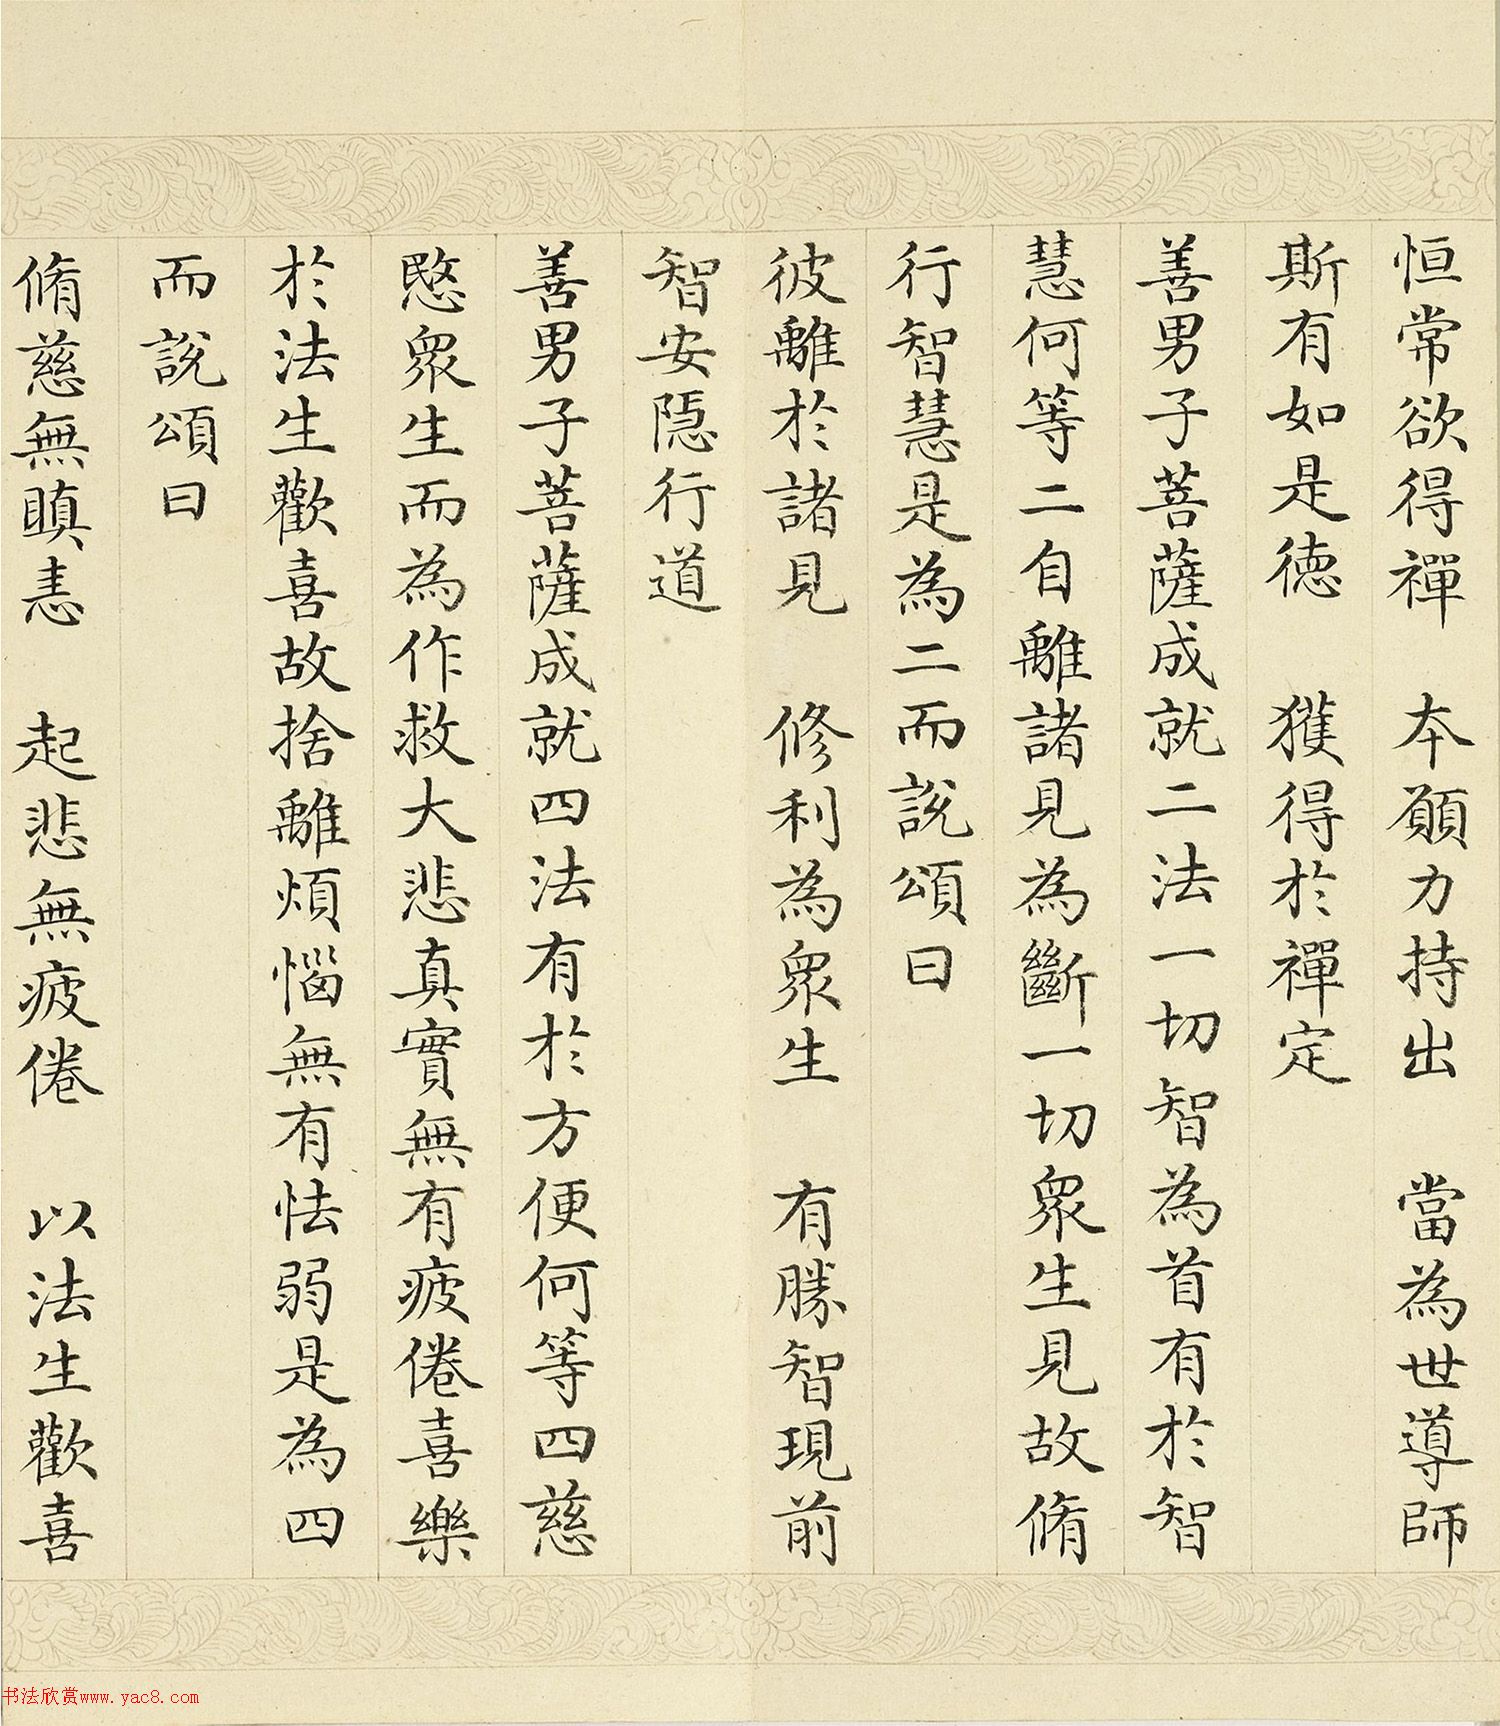 恒常欲得禪　本願力持出　當為世導師
斯有如是徳　獲得於禪定
善男子菩薩成就二法一切智為首有於智
慧何等二自離諸見為斷一切眾生見故脩
行智慧是為二而說頌曰
彼離於諸見　修利為眾生　有勝智現前
智安隱行道
善男子菩薩成就四法有於方便何等四慈
愍眾生而為作救大悲真實無有疲倦喜樂
於法生歡喜故捨離煩惱無有怯弱是為四
而說頌曰
脩慈無瞋恚　起悲無疲倦　以法生歡喜
书法欣赏www.yac8.com